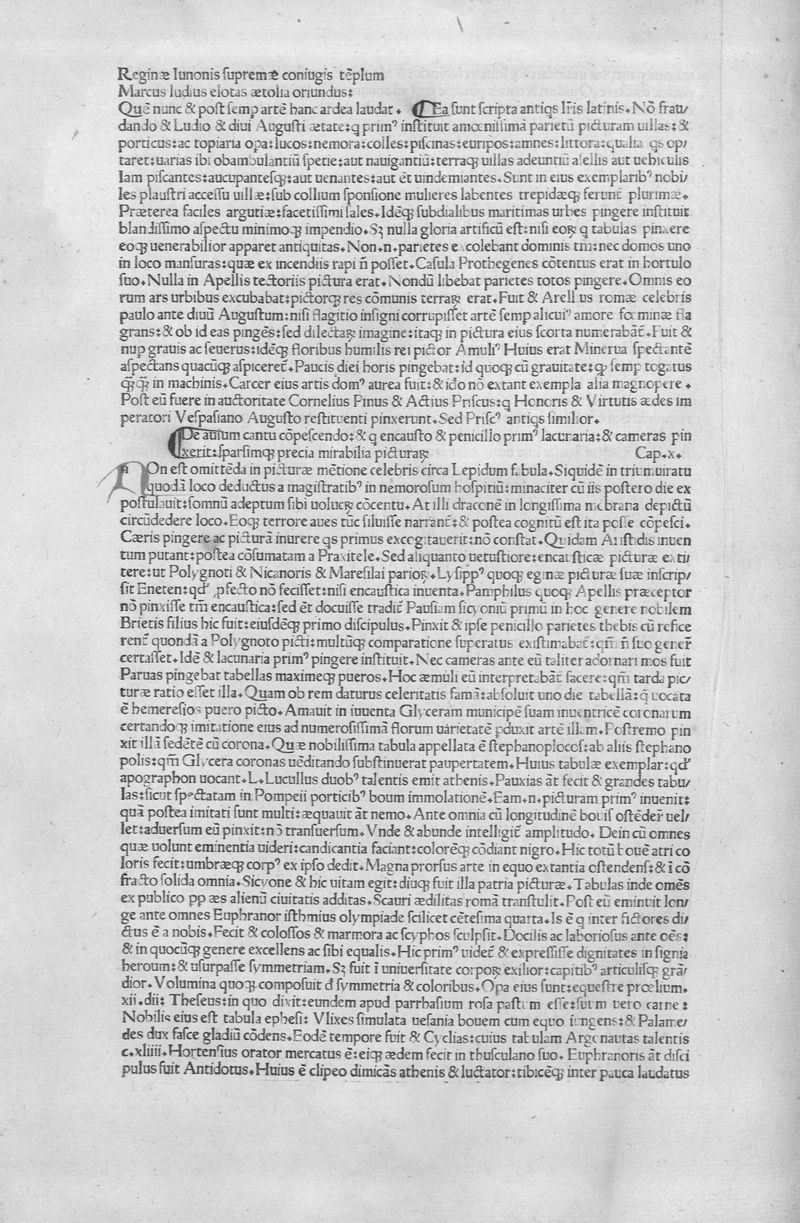 Reginæ Iunonis ſupremæ coniugis tēplum
Marcus ludius elotas ætolia oriundus:
Quē nunc & poſt ſemp artē hanc ardea laudat. Ea ſunt ſcripta antiqs lr̄is latinis. Nō frau/
dando & Ludio & diui Auguſti ætate: q primꝰ inſtituit amœniſſimā parietū picturam uillas: &
porticus: ac topiaria opa: lucos: nemora: colles: piſcinas: euripos: amnes: littora: qualia qs op/
taret: uarias ibi obambulantiū ſpetie: aut nauigantiū: terraqꝫ uillas adeuntiū aſellis aut uehiculis
Iam piſcantes: aucupanteſqꝫ: aut uenantes: aut ēt uindemiantes. Sunt in eius exemplaribꝰ nobi/
les plauſtri acceſſu uillæ: ſub collium ſponſione mulieres labentes trepidæqꝫ ferunt̄ plurimæ.
Præterea faciles argutiæ: facetiſſimi ſales. Idēqꝫ ſubdialibus maritimas urbes pingere inſtituit
blandiſſimo aſpectu minimoqꝫ impendio. Sꝫ nulla gloria artificū eſt: niſi eoꝝ q tabulas pinxere
eoqꝫ uenerabilior apparet antiquitas. Non .n. parietes excolebant dominis tm̄: nec domos uno
in loco manſuras: quæ ex incendiis rapi n̄ poſſet. Caſula Prothegenes cōtentus erat in hortulo
ſuo. Nulla in Apellis tectoriis pictura erat. Nondū libebat parietes totos pingere. Omnis eo
rum ars urbibus excubabat: pictorqꝫ res cōmunis terraꝝ erat. Fuit & Arellius romæ celebris
paulo ante diuū Auguſtum: niſi flagitio inſigni corrupiſſet artē ſemp alicuiꝰ amore fœminæ fla
grans: & ob id eas pingēs: ſed dilectaꝝ imagine: itaqꝫ in pictura eius ſcorta numerabāt̄. Fuit &
nup grauis ac ſeuerus: idēqꝫ floribus humilis rei pictor Amuliꝰ Huius erat Minerua ſpectantē
aſpectans quacūqꝫ aſpiceret̄. Paucis diei horis pingebat: id quoqꝫ cū grauitate: qꝫ ſemp togatus
qꝫqꝫ in machinis. Carcer eius artis domꝰ aurea fuit: & ido nō extant exempla alia magnopere.
Poſt eū fuere in auctoritate Cornelius Pinus & Actius Priſcus: q Honoris & Virtutis ædes im
peratori Veſpaſiano Auguſto reſtituenti pinxerunt. Sed Priſcꝰ antiqs ſimilior.
De auium cantu cōpeſcendo: & q encauſto & penicillo primꝰ lacunaria: & cameras pin
xerit: ſparſimqꝫ precia mirabilia picturaꝝ Cap. x.
NOn eſt omittēda in picturæ mētione celebris circa Lepidum fabula. Siquidē in triumuiratu
quodā loco deductus a magiſtratibꝰ in nemoroſum hoſpitiū: minaciter cū iis poſtero die ex
poſtulauit: ſomnū adeptum ſibi uolucꝝ cōcentu. At illi draconē in longiſſima mēbrana depictū
circūdedere loco. Eoqꝫ terrore aues tūc ſiluiſſe narrant̄: & poſtea cognitū eſt ita poſſe cōpeſci.
Cæris pingere ac picturā inurere qs primus excogitauerit: nō conſtat. Quidam Ariſtidis inuen
tum putant: poſtea cōſumatam a Praxitele. Sed aliquanto uetuſtiore: encauſticæ picturæ exti/
tere: ut Polygnoti & Nicanoris & Mareſilai parioꝝ. Lyſippꝰ quoqꝫ eginæ picturæ ſuæ inſcrip/
ſit Eneten: qd̓ ꝓfecto nō feciſſet: niſi encauſtica inuenta. Pamphilus quoqꝫ Apellis præceptor
nō pinxiſſe tm̄ encauſtica: ſed ēt docuiſſe tradit̄ Pauſiam ſicyoniū primū in hoc genere nobilem
Brietis filius hic fuit: eiuſdēqꝫ primo diſcipulus. Pinxit & ipſe penicillo parietes thebis cū refice
rent̄ quondā a Polygnoto picti: multūqꝫ comparatione ſuperatus exiſtimabat̄: qm̄ n̄ ſuo gener̄
certaſſet. Idē & lacunaria primꝰ pingere inſtituit. Nec cameras ante eū taliter adornari mos fuit
Paruas pingebat tabellas maximeqꝫ pueros. Hoc æmuli eū interpretabāt̄ facere: qm̄ tarda pic/
turæ ratio eſſet illa. Quam ob rem daturus celeritatis famā: abſoluit uno die tabellā: q̄ uocata
ē hemereſios puero picto. Amauit in iuuenta Glyceram municipē ſuam inuentricē coronarum
certandoqꝫ imitatione eius ad numeroſiſſimā florum uarietatē pduxit artē illam. Poſtremo pin
xit illā ſedētē cū corona. Quæ nobiliſſima tabula appellata ē ſtephanoplocoſ: ab aliis ſtephano
polis: qm̄ Glycera coronas uēditando ſubſtinuerat paupertatem. Huius tabulæ exemplar: qd̓
apographon uocant. L. Lucullus duobꝰ talentis emit athenis. Pauxias āt fecit & grandes tabu/
las: ſicut ſpectatam in Pompeii porticibꝰ boum immolationē. Eam .n. picturam primꝰ inuenit:
quā poſtea imitati ſunt multi: æquauit āt nemo. Ante omnia cū longitudinē bouiſ oſtēder̄ uel/
let: aduerſum eū pinxit: nō tranſuerſum. Vnde & abunde intelligit̄ amplitudo. Dein cū omnes
quæ uolunt eminentia uideri: candicantia faciant: colorēqꝫ cōdiant nigro. Hic totū bouē atri co
loris fecit: umbræqꝫ corpꝰ ex ipſo dedit. Magna prorſus arte in equo extantia oſtendenſ: & ī cō
fracto ſolida omnia. Sicyone & hic uitam egit: diuqꝫ fuit illa patria picturæ. Tabulas inde omēs
ex publico pp æs alienū ciuitatis additas. Scauri ædilitas romā tranſtulit. Poſt eū eminuit lon/
ge ante omnes Euphranor iſthmius olympiade ſcilicet cēteſima quarta. Is ē q inter fictores di/
ctus ē a nobis. Fecit & coloſſos & marmora ac ſcyphos ſculpſit. Docilis ac laborioſus ante oēs:
& in quocūqꝫ genere excellens ac ſibi equalis. Hic primꝰ uidet̄ & expreſſiſſe dignitates inſignia
heroum: & uſurpaſſe ſymmetriam. Sꝫ fuit ī uniuerſitate corpoꝝ exilior: capitibꝰ articuliſqꝫ grā/
dior. Volumina quoqꝫ compoſuit đ ſymmetria & coloribus. Opa eius ſunt: equeſtre prœlium.
xii. dii: Theſeus: in quo dixit: eundem apud parrhaſium roſa paſtum eſſe: ſuum uero carne:
Nobilis eius eſt tabula epheſi: Vlixes ſimulata ueſania bouem cum equo iungens: & Palame/
des dux faſce gladiū cōdens. Eodē tempore fuit & Cyclias: cuius tabulam Argonautas talentis
c. xliiii. Hortenſius orator mercatus ē: eiqꝫ ædem fecit in thuſculano ſuo. Euphranoris āt diſci
pulus fuit Antidotus. Huius ē clipeo dimicās athenis & luctator: tibicēqꝫ inter pauca laudatus